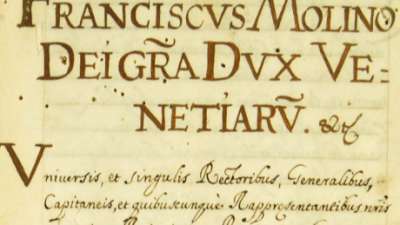 FRANCISCVS MOLINO
DEI GRÃ DVX VE=
NETIARŨ. &c
Vniuersis, et singulis Rectoribus, Generalibus,
Capitaneis, et quibuscunque Rappresentantibus nr̃is